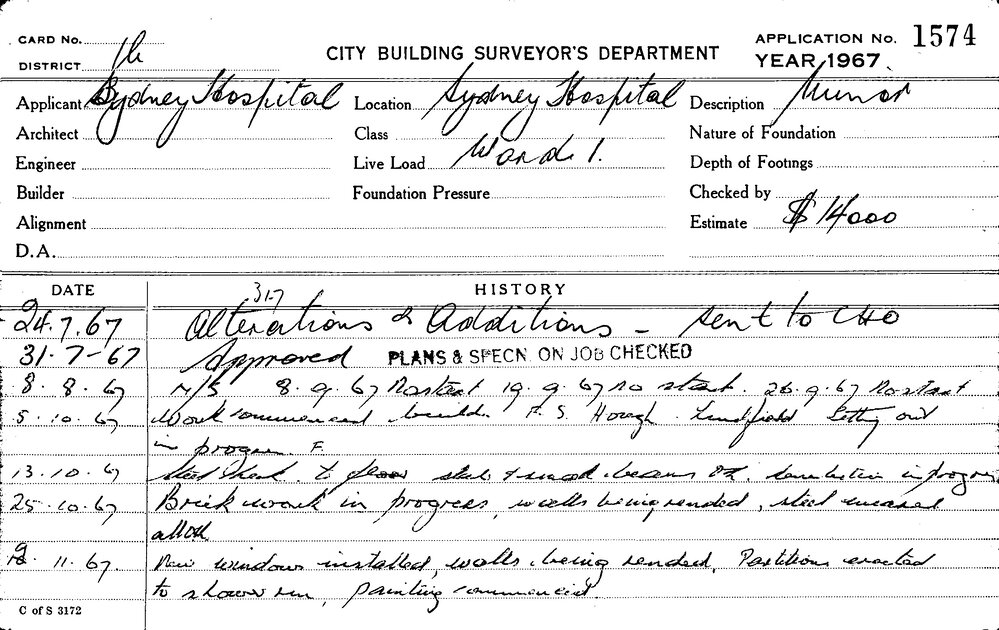 CARD No.
DISTRICT
CITY BUILDING SURVEYOR'S DEPARTMENT
APPLICATION No. 1574
YEAR 1967
Applicant Sydney Hospital Location Sydney Hospital Description Minor
Architect Class Nature of Foundation
Engineer Live Load Ward 1. Depth of Footings
Builder Foundation Pressure Checked by
Alignment Estimate $ 14000
D.A.
DATE HISTORY
317
24.7.67 Alterations & Additions - sent to CHO
31-7-67 Approved PLANS & SPECN. ON JOB CHECKED
8. 8. 67 N/S 8. 9. 67 No start 19. 9. 67 no start. 26. 9. 67 No start
5. 10. 67 Work commenced F. S. Hough Lindfield Setting out
in progress F.
13. 10. 67 Steel to floor slab & beams OK. in progress
25. 10. 67 Brick work in progress, walls being rended, steel encased
all OK
9. 11. 67. New windows installed, walls being rended, Partitions erected
to shower rm, painting commenced.
C of S 3172